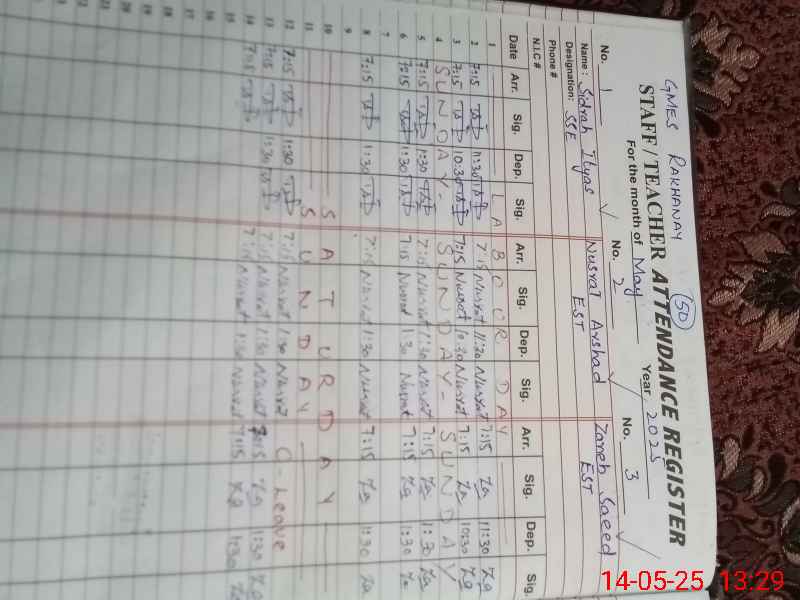 GMES RAKHANAY
50
STAFF / TEACHER ATTENDANCE REGISTER
For the month of May Year 2025
No. 1 No. 2 No. 3
Name: Sidrah Ilyas Nusrat Arshad Zaneb Saeed
Designation: SSE EST EST
Phone #
N.I.C #
Date Arr. Sig. Dep. Sig. Arr. Sig. Dep. Sig. Arr. Sig. Dep. Sig.
1 LABOUR DAY
2 7:15 11:30 7:15 Nusrat 11:30 Nusrat 7:15 Za 11:30 Za
3 7:15 10:30 7:15 Nusrat 10:30 Nusrat 7:15 Za 10:30 Za
4 SUNDAY - SUNDAY - SUNDAY
5 7:15 1:30 7:15 Nusrat 1:30 Nusrat 7:15 Za 1:30 Za
6 7:15 1:30 7:15 Nusrat 1:30 Nusrat 7:15 Za 1:30 Za
7
8 7:15 1:30 7:15 Nusrat 1:30 Nusrat 7:15 Za 1:30 Za
9
10 SATURDAY
11 SUNDAY
12 7:15 1:30 7:15 Nusrat 1:30 Nusrat C-Leave
13 7:15 1:30 7:15 Nusrat 1:30 Nusrat 7:15 Za 1:30 Za
14 7:15 7:15 Nusrat 1:30 Nusrat 7:15 Za 1:30 Za
15
16
17
18
19
20
21
22
23
14-05-25 13:29